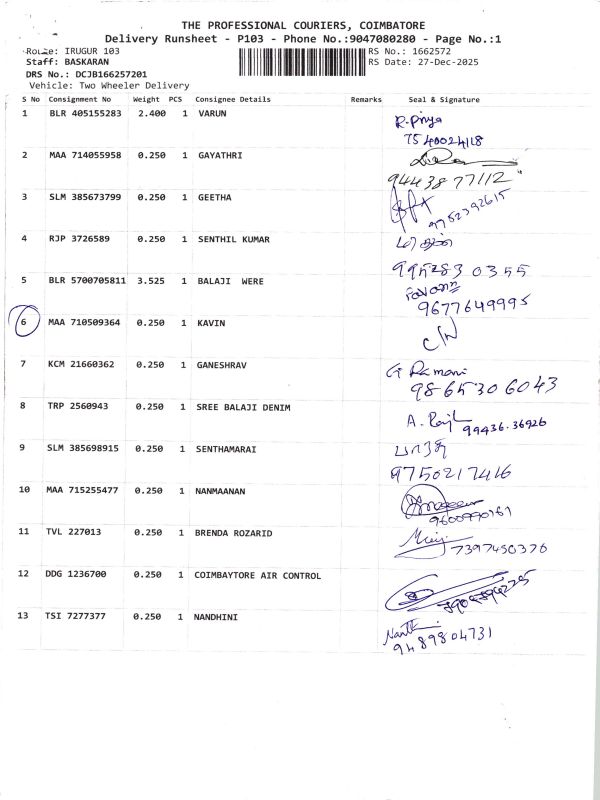 THE PROFESSIONAL COURIERS, COIMBATORE
Delivery Runsheet - P103 - Phone No.:9047080280 - Page No.:1
Route: IRUGUR 103 RS No.: 1662572
Staff: BASKARAN RS Date: 27-Dec-2025
DRS No.: DCJB166257201
Vehicle: Two Wheeler Delivery
S No Consignment No Weight PCS Consignee Details Remarks Seal & Signature
1 BLR 405155283 2.400 1 VARUN R. Priya
7540024118
2 MAA 714055958 0.250 1 GAYATHRI
9443877112
3 SLM 385673799 0.250 1 GEETHA
9752392615
4 RJP 3726589 0.250 1 SENTHIL KUMAR
995283 0355
5 BLR 5700705811 3.525 1 BALAJI WERE
9677649995
6 MAA 710509364 0.250 1 KAVIN C/N
7 KCM 21660362 0.250 1 GANESHRAV G Ramani
98653 06043
8 TRP 2560943 0.250 1 SREE BALAJI DENIM
99436.36926
9 SLM 385698915 0.250 1 SENTHAMARAI
9750217416
10 MAA 715255477 0.250 1 NANMAANAN
11 TVL 227013 0.250 1 BRENDA ROZARID
7397450370
12 DDG 1236700 0.250 1 COIMBAYTORE AIR CONTROL
13 TSI 7277377 0.250 1 NANDHINI
9489804731